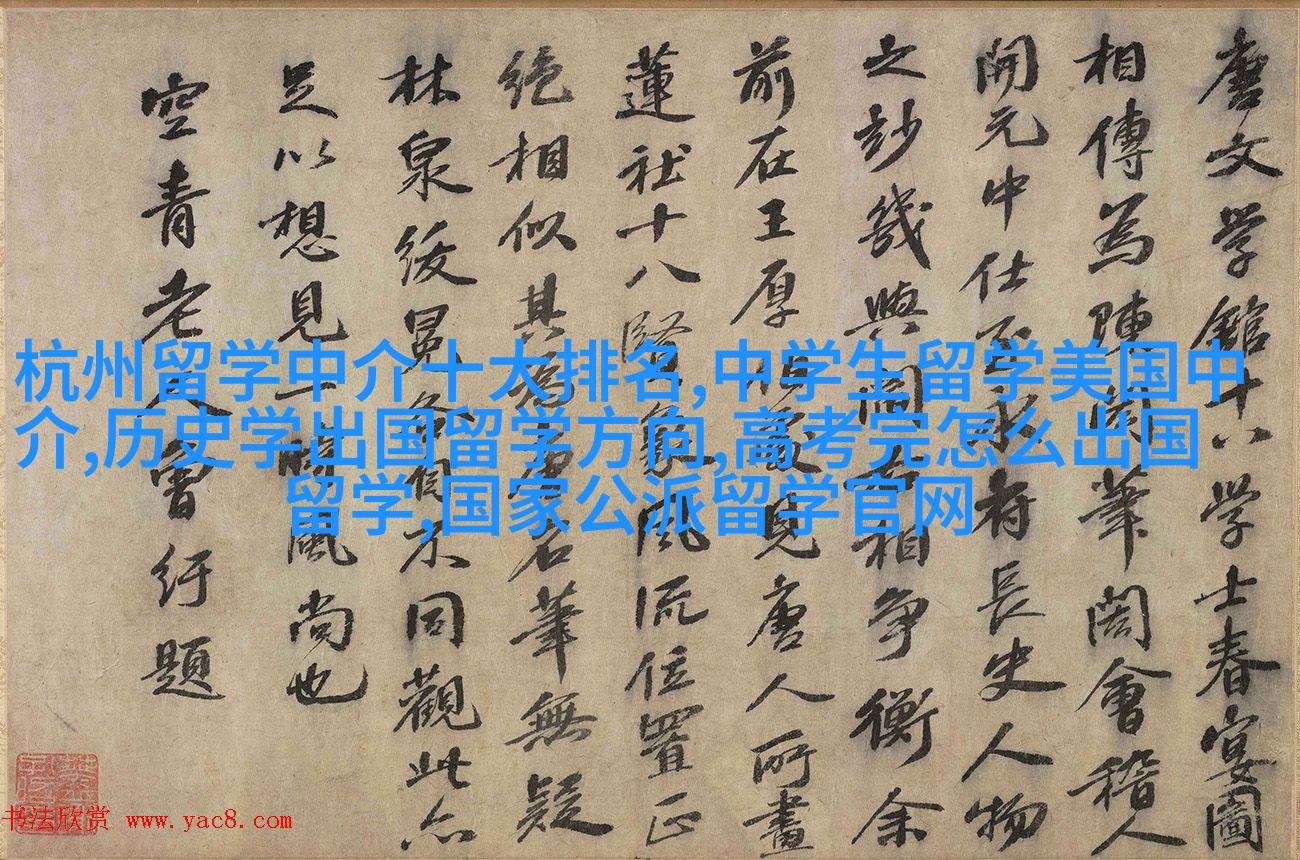 唐文学館十八学士春宴圖
相傳為陳閎筆閎會稽人
開元中仕至永府長史人物
之妙幾與閻令相争衡余
前在王厚見唐人所畫
蓮社十八賢象風流位置正
絶相似其為名筆無疑
林泉綬冕各自不同觀此亦
足以想見一時風尚也
空青老人曾紆題
杭州留学中介十大排名,中学生留学美国中
介,历史学出国留学方向,高考完怎么出国
留学,国家公派留学官网
书法欣赏 www.yac8.com